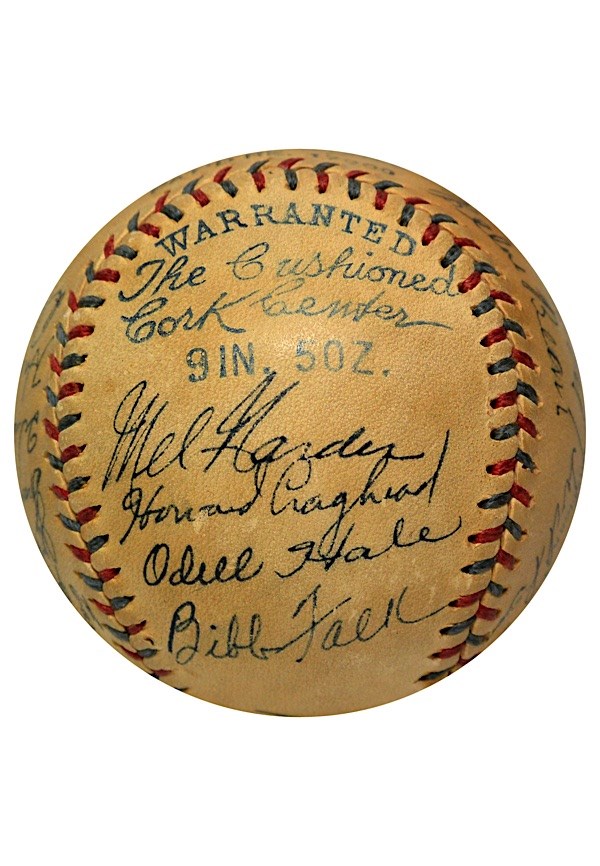 WARRANTED
The Cushioned
Cork Center
9IN. 5OZ.
Mel Harder
Howard Craghead
Odell Hale
Bibb Falk